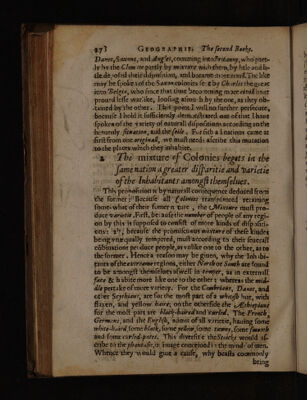 273 GEOGRAPHIE, The second Booke.
Danes, Saxons, and Angles, comming into Britanny, who part-
ly by the Clime partly by mixture with them, by little and lit-
tle de, of d their disposition, and became more
may be spoken of the Saxon colonies sent by Charles the great
into Belgia, who since that time have
proued lesse warlike, loosing also by the one, as they ob-
tained by the other. This point I will no further persecute,
because I hold it sufficiently demonstrated out of that I haue
spoken of the variety of naturall dispositions according to the
heauenly situation, and the soile. For sith all nations came at
first from one originall, we must needs ascribe this mutation
to the places which they inhabite.
2 The mixture of Colonies begets in the
same nation a greater disparitie and varietie
of the Inhabitants amongst themselues.
This proposition is by naturall consequence deduced from
the former: Because all Colonies transplanted retayning
somewhat of their former nature, the Mixture must pro-
duce varietie. First, because the number of people of any regi-
on by this is supposed to consist of more kindes of dispositi-
ons: because the promiscuous mixture of these kindes
being vnequally tempered, must according to their seuerall
combinations produce people, as vnlike one to the other, as to
the former. Hence a reason may be giuen, why the Inhabi-
tants of the extreame regions, either North or South are found
to be amongst themselues aswell in temper, as in externall
face & habite more like one to the other; whereas the mid-
dle pertake of more variety. For the Cimbrians, Danes, and
other Scythians, are for the most part of a whitish hue, with
flaxen, and yellow haire; on the other side the Æthiopians
for the most part are black-haired and curled. The French,
Germans, and the English, admit of all varietie, hauing some
white-haird some black, some yellow, some tawny, some smooth
and some curled-pates. This diuersitie the Society would as-
cribe to the phantasie, or image conceiued in the minde of men.
Whence they would giue a cause, why beasts commonly
being